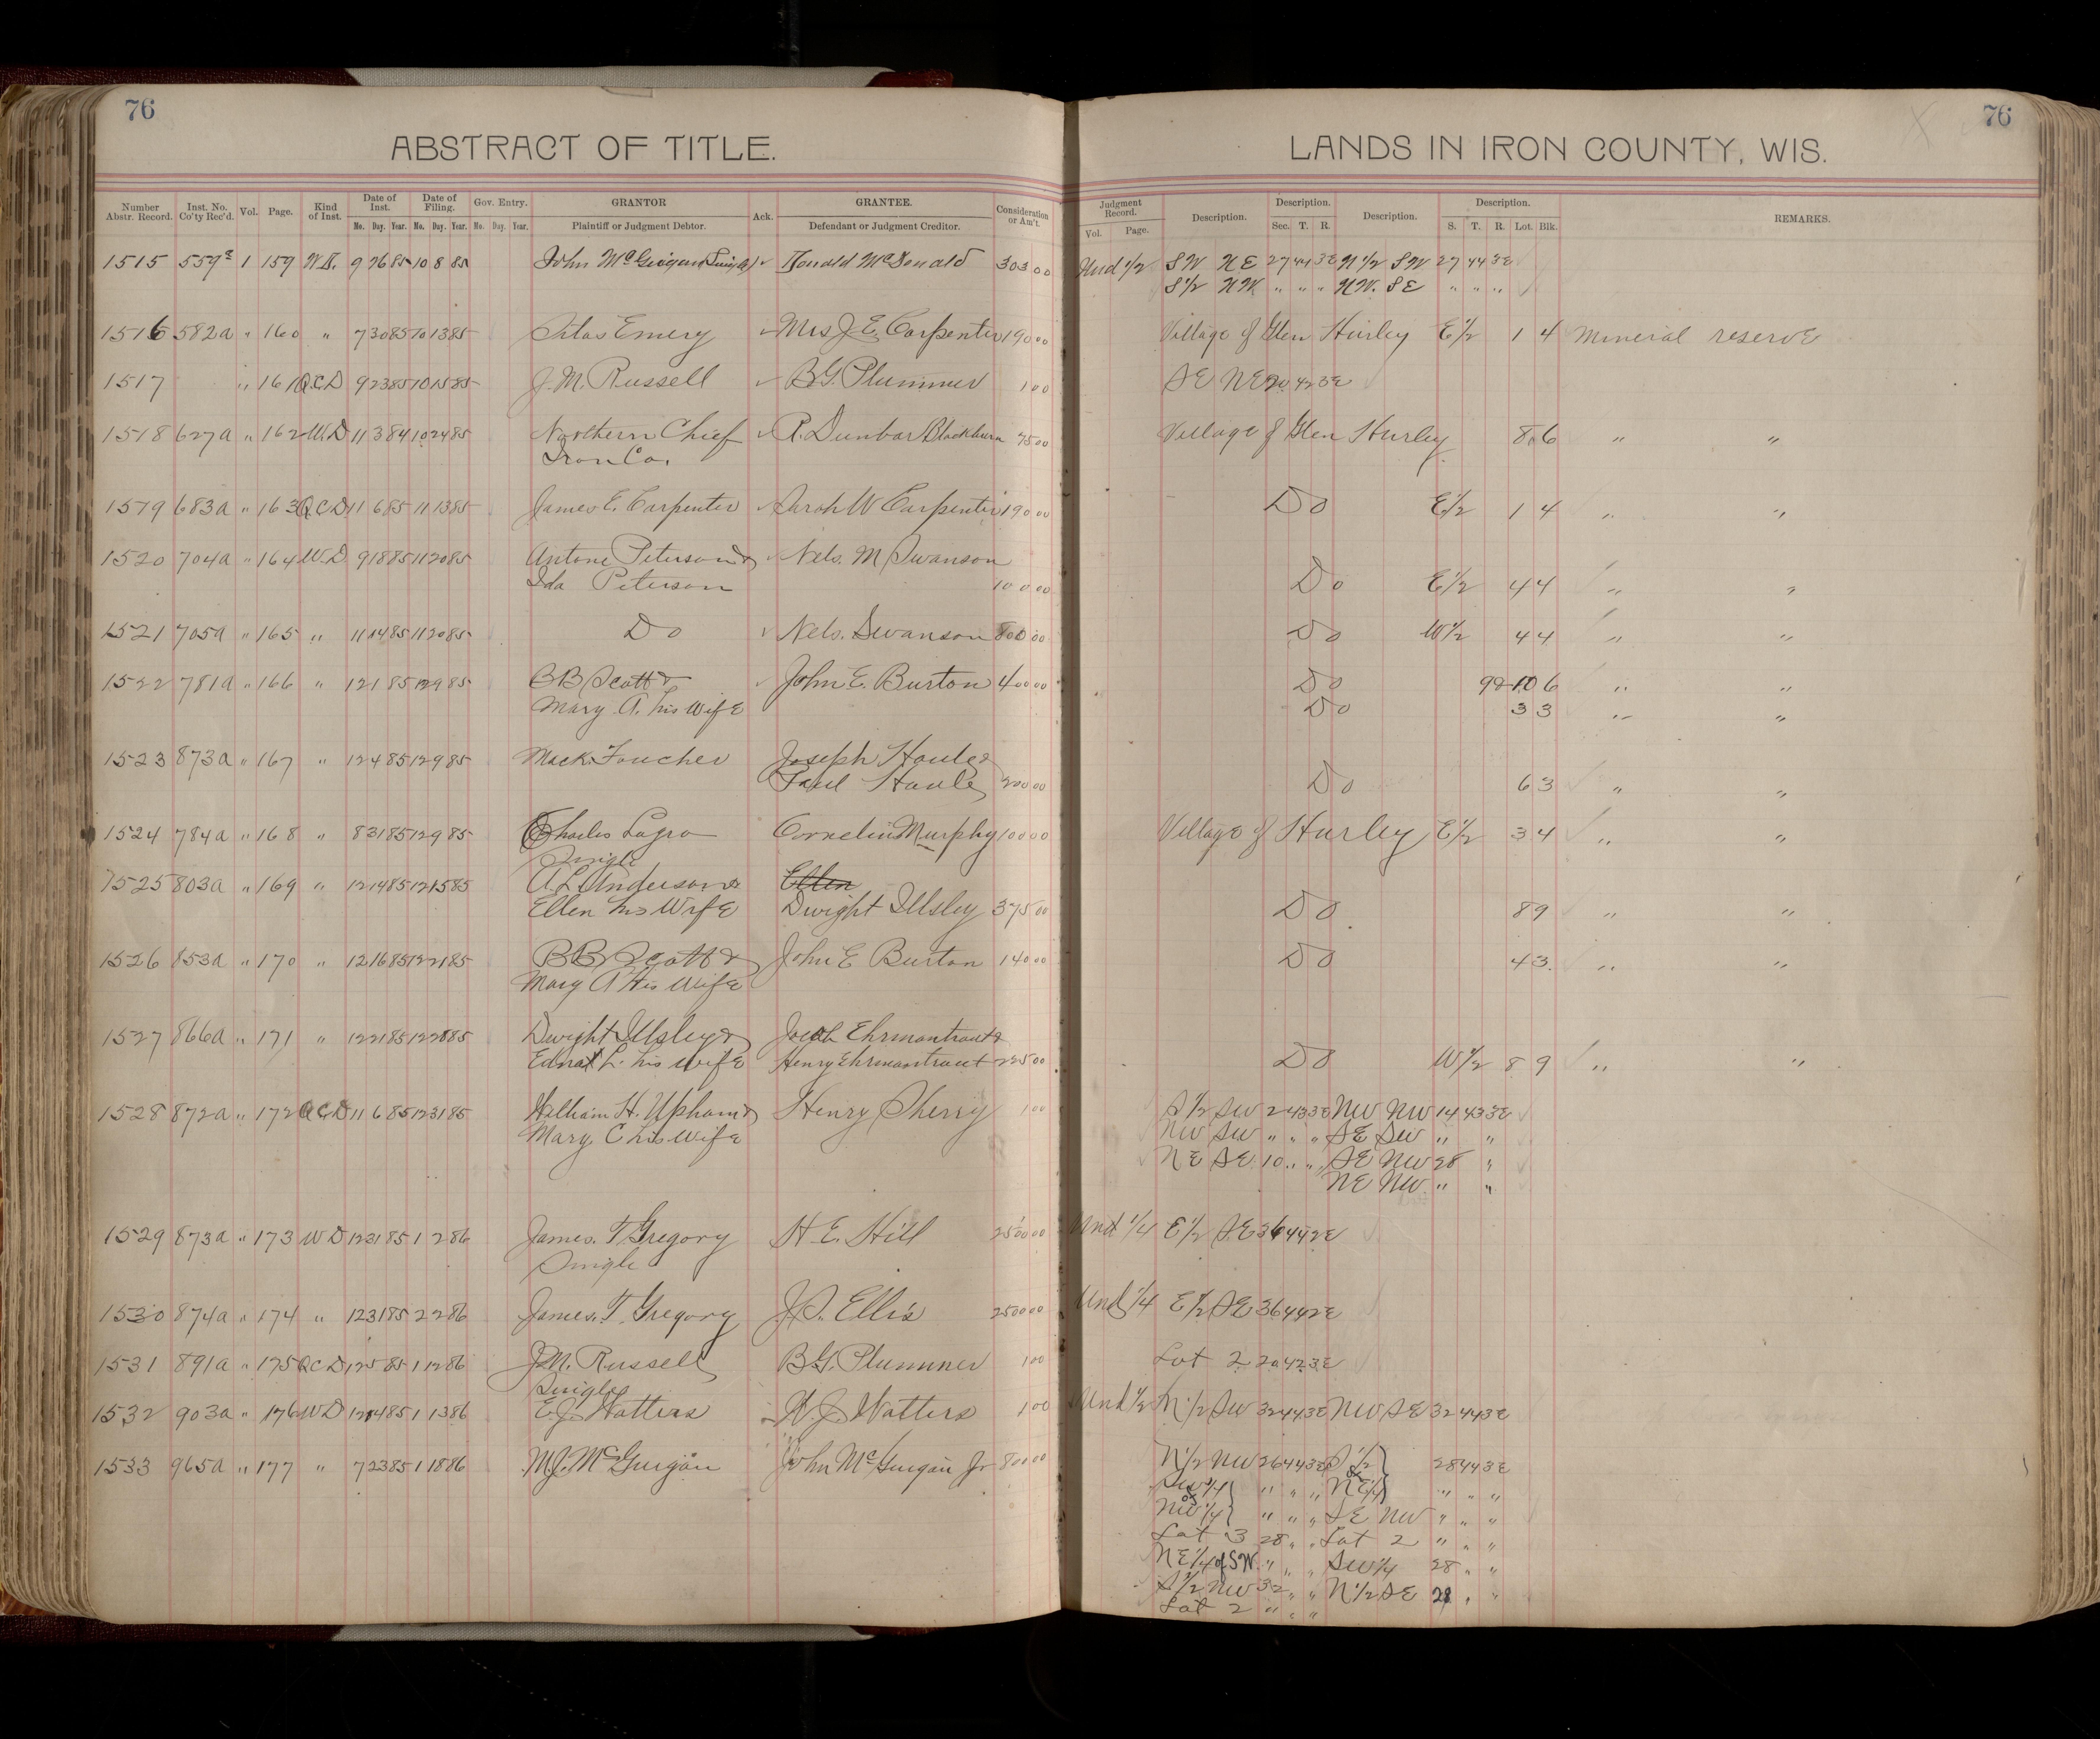 76
76
ABSTRACT OF TITLE.
LANDS IN IRON COUNTY, WIS.
Number Abstr. Record. Inst. No. Co'ty Rec'd. Vol. Page. Kind of Inst. Date of Inst. Date of Filing. Gov. Entry. GRANTOR Ack. GRANTEE. Consideration or Am't. Judgment Record. Description. Description. Description. Description. REMARKS.
Mo. Day. Year. Mo. Day. Year. Mo. Day. Year. Plaintiff or Judgment Debtor. Defendant or Judgment Creditor. Vol. Page. Sec. T. R. S. T. R. Lot. Blk.
1515 1 159 W.D. 9 26 85 10 8 85 John McGuigan Donald McDonald 303 00 Und 1/2 SW NE 27 44 3E N 1/2 SW 27 44 3E
S 1/2 NW " " " NW. SE " " "
1516 582a " 160 " 7 30 85 10 13 85 Silas Emery Mrs J. E. Carpenter 190 00 Village of Glen Hurley E 1/2 1 4 Mineral reserve
1517 " 161 QCD 9 23 85 10 15 85 J. M. Russell B. G. Plummer 1 00 SE NE 20 42 3E
1518 627a " 162 W.D 11 3 84 10 24 85 Northern Chief R. Dunbar Blackburn 75 00 Village of Glen Hurley 8 6 " "
Iron Co.
1519 683a " 163 QCD 11 6 85 11 13 85 James E. Carpenter Sarah W Carpenter 190 00 Do E 1/2 1 4 " "
1520 704a " 164 W.D 9 18 85 11 20 85 Antone Peterson & Nels. M Swanson
Ida Peterson 100 00 Do E 1/2 4 4 " "
1521 705a " 165 " 11 14 85 11 20 85 Do Nels. Swanson 800 00 Do W 1/2 4 4 " "
1522 781a " 166 " 12 1 85 12 9 85 B B Scott & John E. Burton 400 00 Do 9 & 10 6 " "
Mary A. his Wife Do 3 3 " "
1523 873a " 167 " 12 4 85 12 9 85 Mack. Foucher Joseph Houle &
Paul Houle 200 00 Do 6 3 " "
1524 784a " 168 " 8 31 85 12 9 85 Charles Cornelius Murphy 100 00 Village of Hurley E 1/2 3 4 " "
Single
1525 803a " 169 " 12 14 85 12 15 85 A. L. Anderson & Ellen
Ellen his Wife Dwight Illsley 375 00 Do 8 9 " "
1526 853a " 170 " 12 16 85 12 21 85 B B Scott & John E Burton 140 00 Do 4 3. " "
Mary A His Wife
1527 866a " 171 " 12 21 85 12 28 85 Dwight Illsley & Jacob Ehrmantraut &
Edna L. his wife Henry Ehrmantraut 225 00 Do W 1/2 8 9 " "
1528 872a " 172 QCD 11 6 85 12 31 85 William H. Upham & Henry Sherry 1 00 S 1/2 SW 2 43 3E NW NW 14 43 3E
Mary C his wife NW SW " " " SE SW " "
NE SE 10 " " SE NW 28 "
NE NW " "
1529 873a " 173 W D 12 31 85 1 2 86 James. T Gregory H. E. Hill 2500 00 Und 1/4 E 1/2 SE 36 44 2E
Single
1530 874a " 174 " 12 31 85 2 2 86 James. T. Gregory J. S. Ellis 2500 00 Und 1/4 E 1/2 SE 36 44 2E
1531 891a " 175 QCD 12 5 85 1 12 86 J M. Russell B. G. Plummer 1 00 Lot 2 20 42 3E
Single
1532 903a " 176 W D 12 14 85 1 13 86 E. J. Watters W. J. Watters 1 00 Und 1/2 N 1/2 SW 32 44 3E NW SE 32 44 3E
1533 965a " 177 " 7 23 85 1 18 86 M J. McGurgan John McGurgan Jr 800 00 N 1/2 NW 26 44 3E S 1/2 } 28 44 3E
SW 1/4 } " " " of NE 1/4 } " " "
of NW 1/4 } " " " SE NW " " "
Lot 3 28 " " Lot 2 " " "
NE 1/4 of SW. " " " SW 1/4 28 " "
S 1/2 NW 32 " " N 1/2 SE 28 " "
Lot 2 " " "